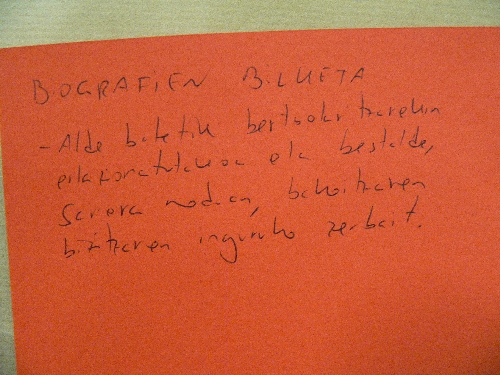 BIOGRAFIEN BILKETA
- Alde batetik bertsolaritzarekin
erlazionatutakoa eta bestalde,
sarrera moduan, bakoitzaren
bizitzaren inguruko zerbait.